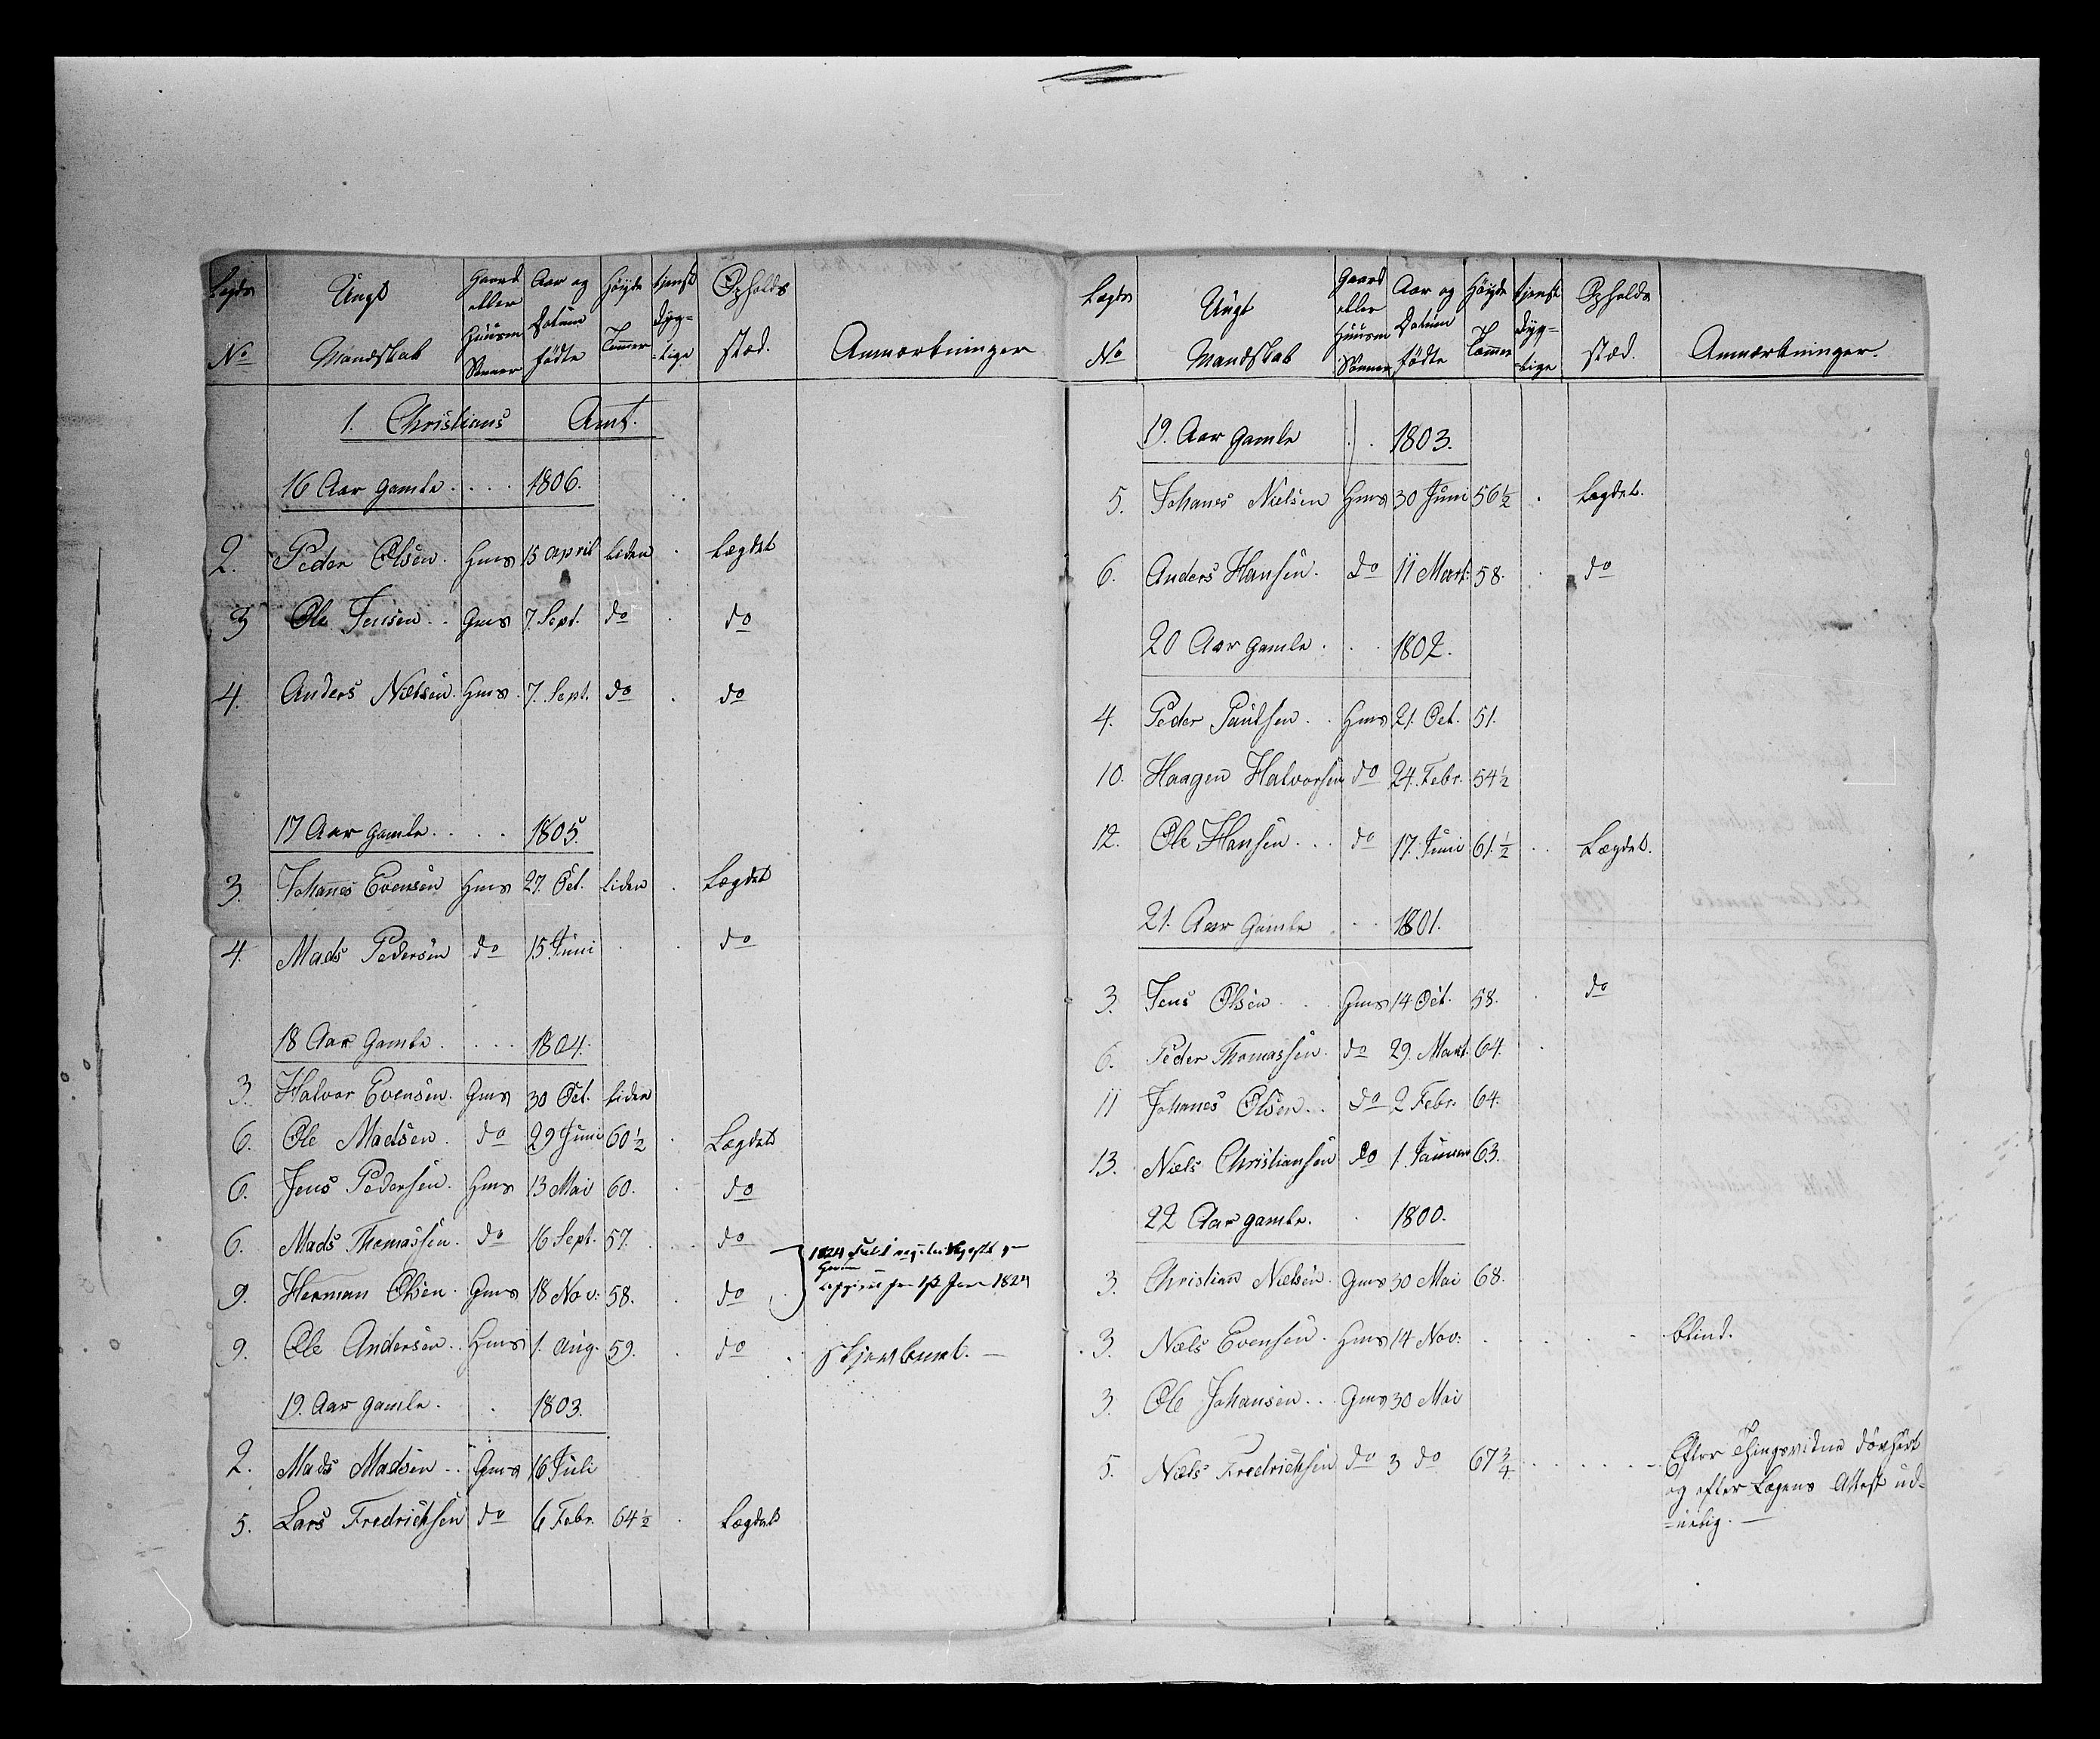 Lægds No Ungt Mandskab Gaard eller Huusm Sønner Aar og Datum fødte Høyde Tommer tjenst dyg= =tige Opholds stæd. Anmærkninger
1. Christians Amt.
16 Aar gamle . . . . 1806.
2. Peder Olsen. Hms 15 april liden . Lægdet
3 Ole Jensen . . Gms 7. Sept. do . do
4. Anders Nielsen. Hms . 7. Sept. do . do
17 Aar gamle . . . . 1805.
3. Johanes Evensen Hms 27. Oct. liden . Lægdet
4. Mads Pedersen do 15 Juni . . do
18 Aar gamle . . . . 1804.
3. Halvor Evensen. Gms 30 Oct. liden
6. Ole Madsen . do 29 Juni 60 1/2 . Lægdet
6. Jens Pedersen. Hms 13 Mai 60. . do
6. Mads Thomassen. do 16 Sept. 57. . do
9. Herman Olsen. Gms 18 Nov: 58. . do
9. Ole Andersen . . Hms 1. Aug. 59. . do
19. Aar gamle . . 1803.
2. Mads Madsen . . Gms 16 Juli
5. Lars Fredrichsen do 6 Febr. 64 1/2 . Lægdet
Lægds No Ungt Mandskab Gaard eller Huusm Sønner Aar og Datum fødte Høyde Tommer tjenst dyg= =tige Opholds stæd. Anmærkninger.
19. Aar gamle . 1803.
5. Johanes Nielsen Hms 30 Juni 56 1/2 . Lægdet.
6. Anders Hansen. do 11 Mart. 58. . do
20 Aar gamle . . . 1802.
4. Peder Paulsen . . Hms 21. Oct. 51.
10. Haagen Halvorsen do 24. Febr. 54 1/2
12. Ole Hansen . . . do 17. Juni 61. 1/2 . . Lægdet.
21. Aar gamle . . 1801.
3. Jens Olsen . . Gms 14 Oct. 58. . do
6. Peder Thomassen. do 29. Mart. 64. .
11 Johanes Olsen . . do 2 Febr. 64.
13. Niels Christiansen do 1. Januar 63.
22 Aar gamle. . 1800.
3. Christian Nielsen. Gms 30 Mai 68.
3. Niels Evensen . Hms 14 Nov: . . . . blind.
3. Ole Johansen . . . Gms 30 Mai
5. Niels Fredrichsen do 3 do 67 3/4 . . . . . Efter Thingsvidne
og efter Lægens Attest ud=